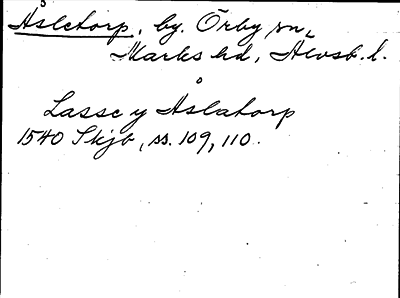 Åsletorp, by. Örby sn,
Marks hd, Älvsb. l.
Lasse y Åslatorp
1540 Skjb, ss. 109, 110.